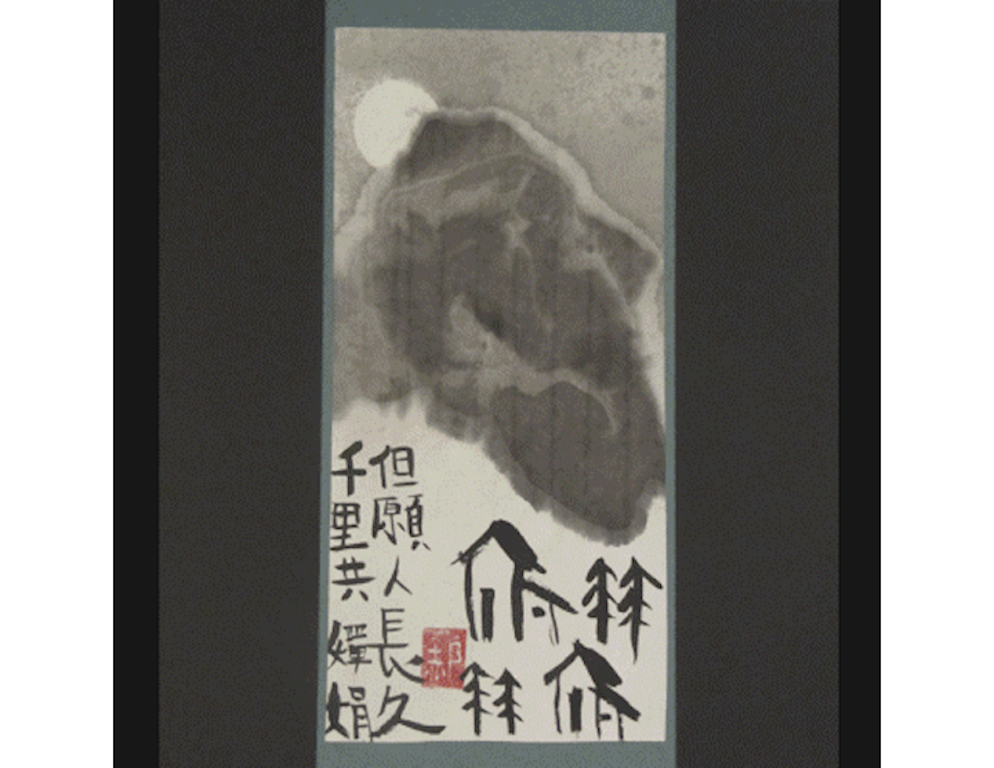 但願人長久
千里共嬋娟